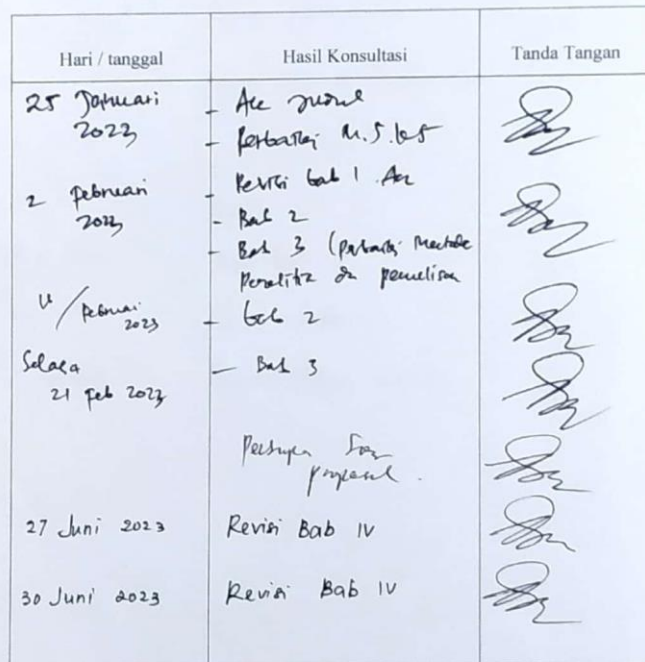 Hari / tanggal Hasil Konsultasi Tanda Tangan
25 Januari - Acc Judul
2023 - Perbaiki
2 Februari - Revisi bab 1. Acc
2023 - Bab 2
- Bab 3 (perbaiki Metode
Penelitia dan penulisan
/ Februari 2023 - bab 2
Selasa - Bab 3
21 Feb 2023
proposal.
27 Juni 2023 Revisi Bab IV
30 Juni 2023 Revisi Bab IV